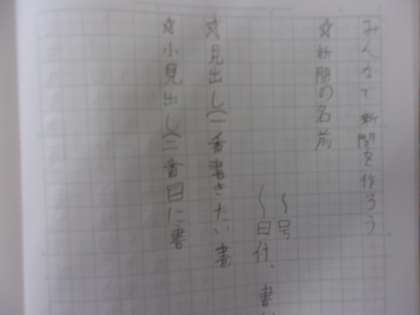 みんなで新聞を作ろう
☆新聞の名前
〜号
〜日付、書
☆見出し(一番書きたい書
☆小見出し(二番目に書